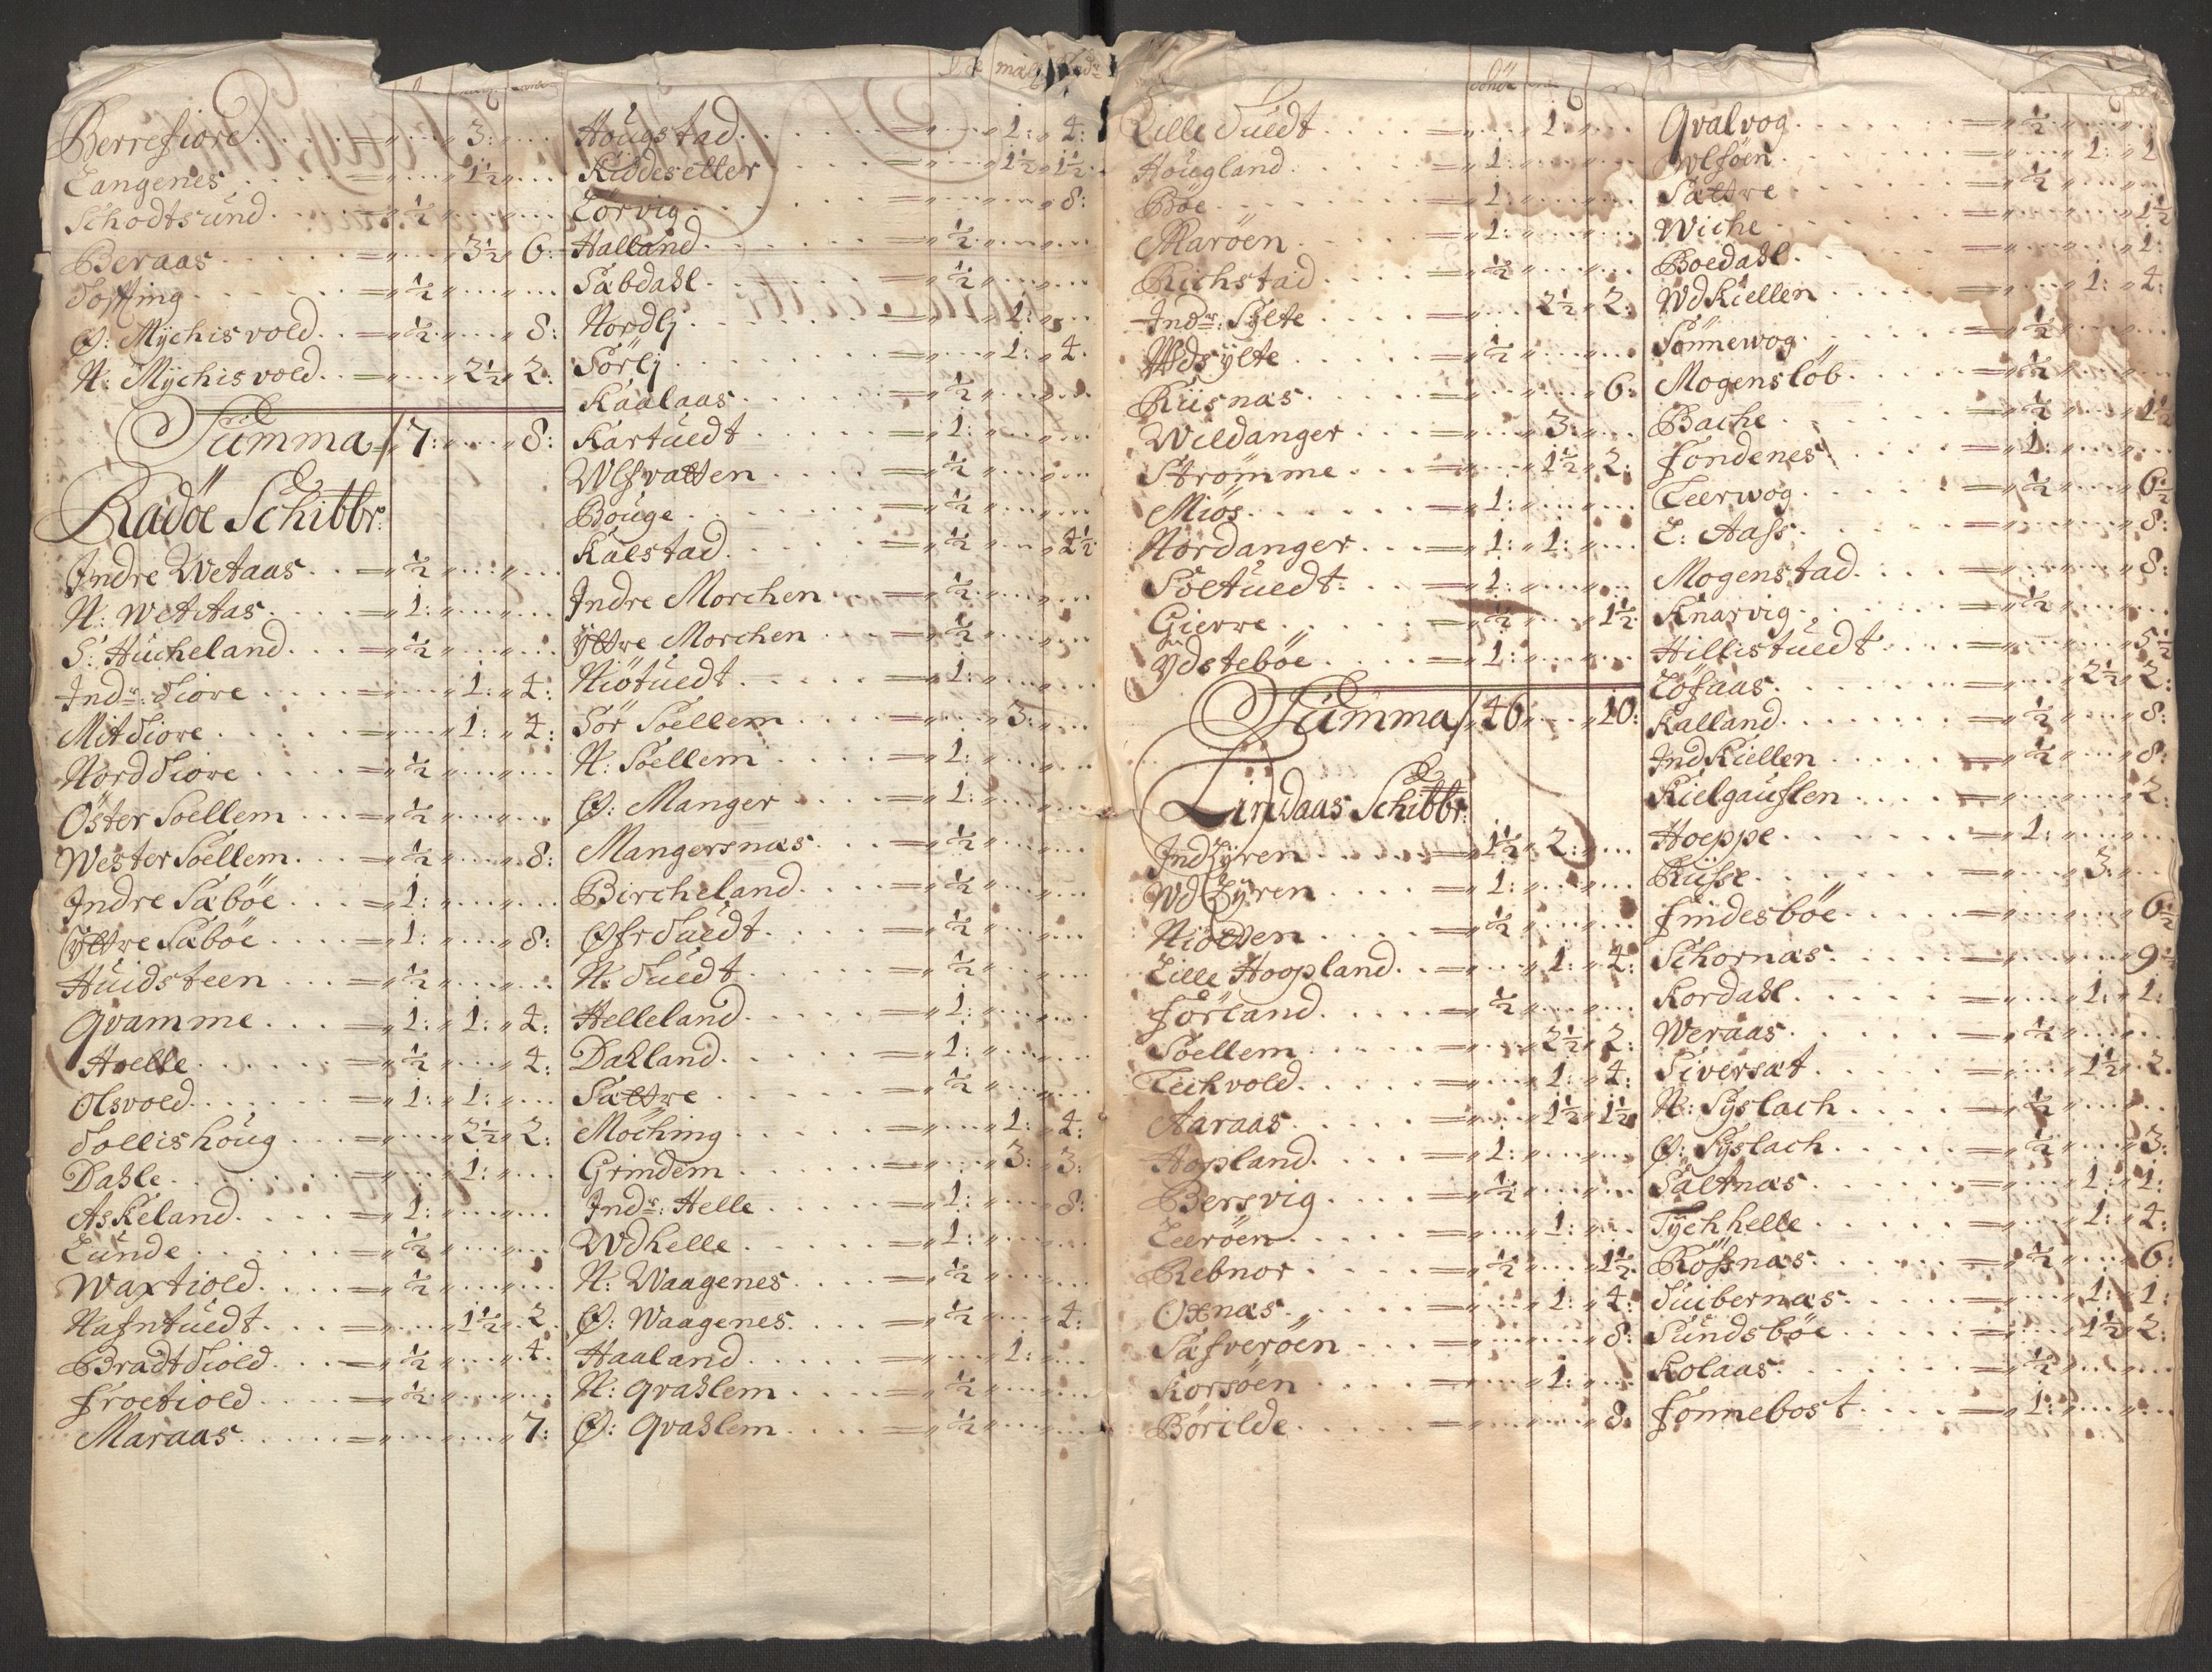 Berrefiord . . . = " . . . 3: " . . .
Langenes . . . = " . . . 1½ " . . .
Schodtsund . . . = " ½ " . . . " . . .
Beraas . . . = " . . . 3½ " 6:
Totting . . . = " ½ " . . . " . . .
Ø: Mÿchisvold . . = " ½ " . . . " 8:
N: Mÿchisvold . . = " . . . 2½ " 2:
Summa / 7: " . . . " 8:
Radöe Schibbr:
Indre Wetaas . . = " ½ " . . . " . . .
N: Wettas . . . = " 1: " . . . " . . .
S: Hucheland . . . = " ½ " . . . " . . .
Indr: Tiore . . . = " . . . 1: " 4:
Mit Tiore . . . = " . . . 1: " 4:
Nord Tiore . . . = " ½ " . . . " . . .
Öster Soellem . . . = " ½ " . . . " . . .
Wester Soellem . . . = " ½ " . . . " 8:
Indre Sæböe . . . = " 1: " . . . " . . .
Ÿttre Sæböe . . . = " 1: " . . . " 8:
Huidsteen . . . = " ½ " . . . " . . .
Qvamme . . . = " 1: " 1: " 4:
Hoelle . . . = " ½ " . . . " 4:
Olsvold . . . = " 1: " 1: " . . .
Tollishoug . . . = " . . . 2½ " 2:
Dahle . . . = " . . . 1: " . . .
Askeland . . . = " 1: " . . . " . . .
Lunde . . . = " ½ " . . . " . . .
Waxtiold . . . = " ½ " . . . " . . .
Nafntuedt . . . = " . . . 1½ " 2
Bradt Tiold . . . = " ½ " . . . " 4.
Froetiold . . . = " ½ " . . . " . . .
Maraas . . . = " . . . " . . . " 7:
Hougstad . . . = " . . . 1: " 4:
Kiddesetter . . . = " . . . 1½ " 1½:
Lörvig . . . = " . . . " . . . " 8:
Halland . . . = " ½ " . . . " . . .
Sæbdahl . . . = " ½ " . . . " . . .
Nordlj . . . = " . . . 1: " . . .
Sörlj . . . = " . . . 1: " 4.
Kaalaas . . . = " ½ " . . . " . . .
Kartuedt . . . = " 1: " . . . " . . .
Wlfvatten . . . = " ½ " . . . " . . .
Bouge . . . = " ½ " . . . " . . .
Kalstad . . . = " ½ " . . . " 4½
Indre Morchen . . . = " ½ " . . . " . . .
Ÿttre Morchen . . . = " ½ " . . . " . . .
Niötuedt . . . = " 1: " . . . " . . .
Sör Soellem . . . = " . . . 3: " . . .
N: Soellem . . . = " 1: " . . . " . . .
Ø: Manger . . . = " 1: " . . . " . . .
Mangersnæs . . . = " ½ " . . . " . . .
Bircheland . . . = " ½ " . . . " . . .
Øfr Tuedt . . . = " ½ " . . . " . . .
N: Tuedt . . . = " ½ " . . . " . . .
Helleland . . . = " 1: " . . . " . . .
Dahland . . . = " 1: " . . . " . . .
Sættre . . . = " ½ " . . . " . . .
Möching . . . = " . . . 1: " 4:
Grindem . . . = " . . . 3: " 3:
Indr: Helle . . . = " 1: " . . . " 8:
Wdhelle . . . = " 1: " . . . " . . .
N: Waagenes . . . = " ½ " . . . " . . .
Ø: Waagenes . . . = " ½ " . . . " 4:
Haaland . . . = " . . . 1: " . . .
N: Qvahlem . . . = " ½ " . . . " . . .
Ø: Qvahlem . . . = " ½ " . . . " . . .
Lille Tuedt . . . = " . . . 1: " . . .
Hougland . . . = " 1: " . . . " . . .
Böe . . . = " 1: " . . . " . . .
Maröen . . . = " 1: " . . . " . . .
Richstad . . . = " ½ " . . . " . . .
Indr: Sÿlte . . . = " . . . 2½ " 2:
Wdsÿlte . . . = " ½ " . . . " . . .
Riisnæs . . . = " . . . " . . . " 6:
Wildanger . . . = " . . . 3: " . . .
Strömme . . . = " . . . 1½ " 2:
Miös . . . = " 1: " . . . " . . .
Nordanger . . . = " 1: " 1: " . . .
Soltuedt . . . = " 1: " . . . " . . .
Gierre . . . = " ½ " . . . " 1½:
Ydsteböe . . . = " 1: " . . . " . . .
Summa / 46 " . . . " 10:
Lindaas Schibbr:
Ind Lÿren . . . = " 1½ " 2: " . . .
Wd Lÿren . . . = " 1: " . . . " . . .
Niölden . . . = " ½ " . . . " . . .
Lille Hoopland . . = " . . . 1: " 4:
Förland . . . = " ½ " . . . " . . .
Soellem . . . = " . . . 2½ " 2:
Leckvold . . . = " . . . 1: " 4:
Aaraas . . . = " . . . 1½ " 1½
Hopland . . . = " 1: " . . . " . . .
Bersvig . . . = " ½ " . . . " . . .
Leeröen . . . = " . . . 1: " . . .
Rebnor . . . = " ½ " . . . " 1½:
Oxnæs . . . = " . . . 1: " 4:
Sæfveröen . . . = " . . . " . . . " 8:
Korsöen . . . = " . . . 1: " . . .
Börilde . . . = " . . . " . . . " 8:
Qvalvog . . . = " ½ " . . . " . . .
Wlföen . . . = " . . . 1: " 1
Sættre . . . = " ½ " . . . " . . .
Wiche . . . = " . . . " . . . " 1½
Boedahl . . . = " . . . " . . . " 1:
Wdkiellen . . . = " . . . 1: " 4:
Sönnewog . . . = " ½ " . . . " . . .
Mogenslöb . . . = " ½ " . . . " . . .
Bache . . . = " ½ " . . . " 1½
Fondenes . . . = " 1: " . . . " . . .
Leerwog . . . = " ½ " . . . " 6½
L: Aass . . . = " . . . " . . . " 8:
Mogenstad . . . = " . . . " . . . " 8:
Knarvig . . . = " ½ " . . . " . . .
Hillistuedt . . . = " . . . " . . . " 5½
Löfaas . . . = " . . . 2½ " 2:
Kalland . . . = " ½ " . . . " 8:
Indkiellen . . . = " ½ " . . . " 8:
Kielgauflen . . . = " . . . " . . . " 2:
Hoeppe . . . = " 1: " . . . " . . .
Risse . . . = " . . . 3: " . . .
Findesböe . . . = " . . . " . . . " 6½
Schornæs . . . = " . . . " . . . " 9½
Kordahl . . . = " . . . 1: " 1:
Weraas . . . = " ½ " . . . " . . .
Siversæt . . . = " . . . 1½ " 2.
N: Sÿslach . . . = " ½ " . . . " . . .
Ø: Sÿslach . . . = " ½ " . . . " 3:
Saltnæs . . . = " . . . 1: " 1:
Tÿchhelle . . . = " . . . 1: " 4:
Rössnæs . . . = " ½ " . . . " 6:
Tuibernæs . . . = " . . . 1: " 1:
Sundsböe . . . = " . . . 1½ " 2:
Kolaas . . . = " ½ " . . . " . . .
Fonnebost . . . = " 1: " . . . " . . .